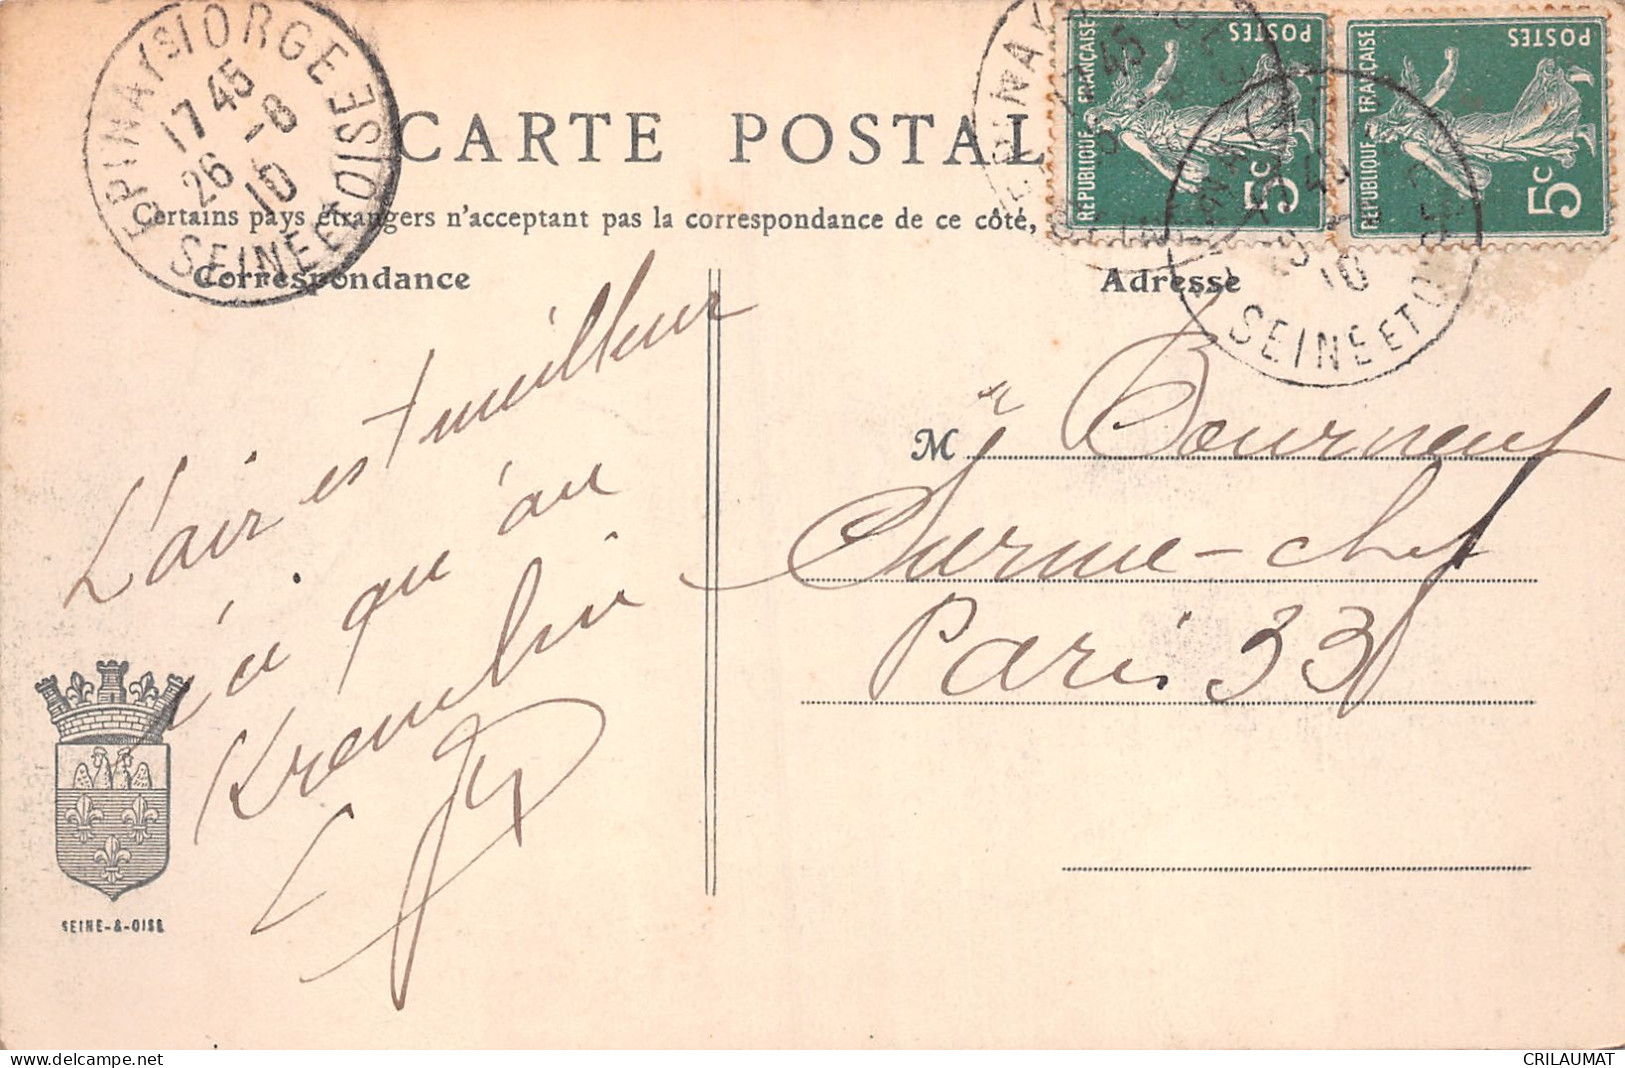 EPINAY S/ ORGE
17 45
26 -8
10
SEINE ET OISE
CARTE POSTAL
Certains pays étrangers n'acceptent pas la correspondance de ce côté,
Correspondance
Adresse
REPUBLIQUE FRANÇAISE
POSTES
5c
REPUBLIQUE FRANÇAISE
POSTES
5c
45
10
SEINE ET O
L'air est meilleur
ici qu'au
Kremlin
M r Bourneuf
Surme-chef
Paris 33
SEINE-&-OISE
CRILAUMAT